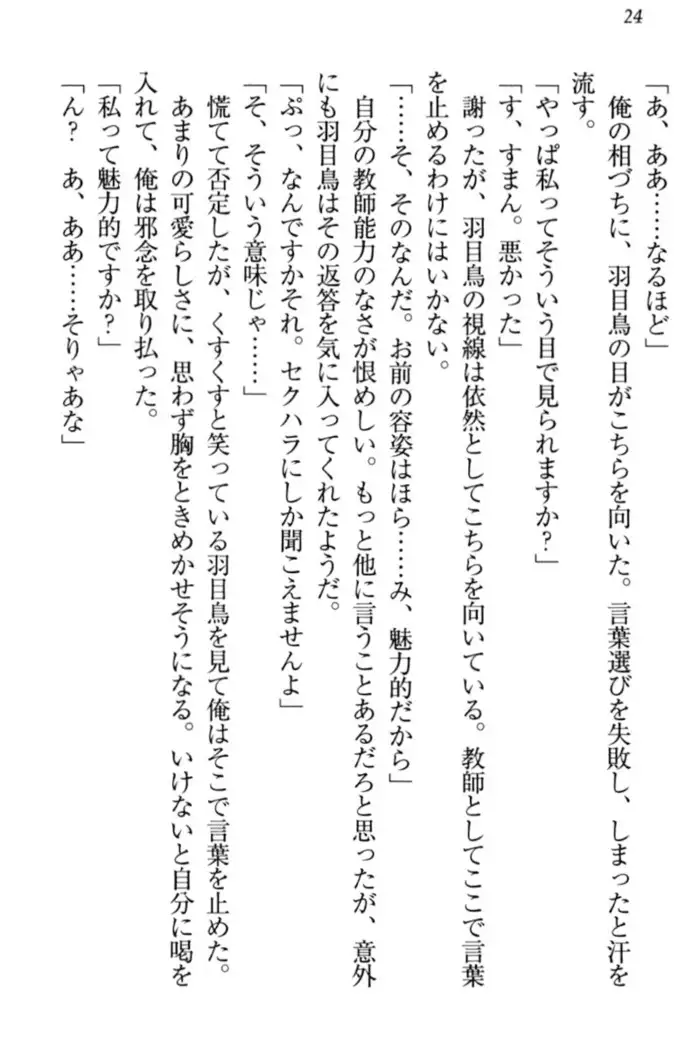 24
「あ、ああ……なるほど」
俺の相づちに、羽目鳥の目がこちらを向いた。言葉選びを失敗し、しまったと汗を
流す。
「やっぱ私ってそういう目で見られますか？」
「す、すまん。悪かった」
謝ったが、羽目鳥の視線は依然としてこちらを向いている。教師としてここで言葉
を止めるわけにはいかない。
「……そ、そのなんだ。お前の容姿はほら……み、魅力的だから」
自分の教師能力のなさが恨めしい。もっと他に言うことあるだろと思ったが、意外
にも羽目鳥はその返答を気に入ってくれたようだ。
「ぷっ、なんですかそれ。セクハラにしか聞こえませんよ」
「そ、そういう意味じゃ……」
慌てて否定したが、くすくすと笑っている羽目鳥を見て俺はそこで言葉を止めた。
あまりの可愛らしさに、思わず胸をときめかせそうになる。いけないと自分に喝を
入れて、俺は邪念を取り払った。
「私って魅力的ですか？」
「ん？　あ、ああ……そりゃあな」